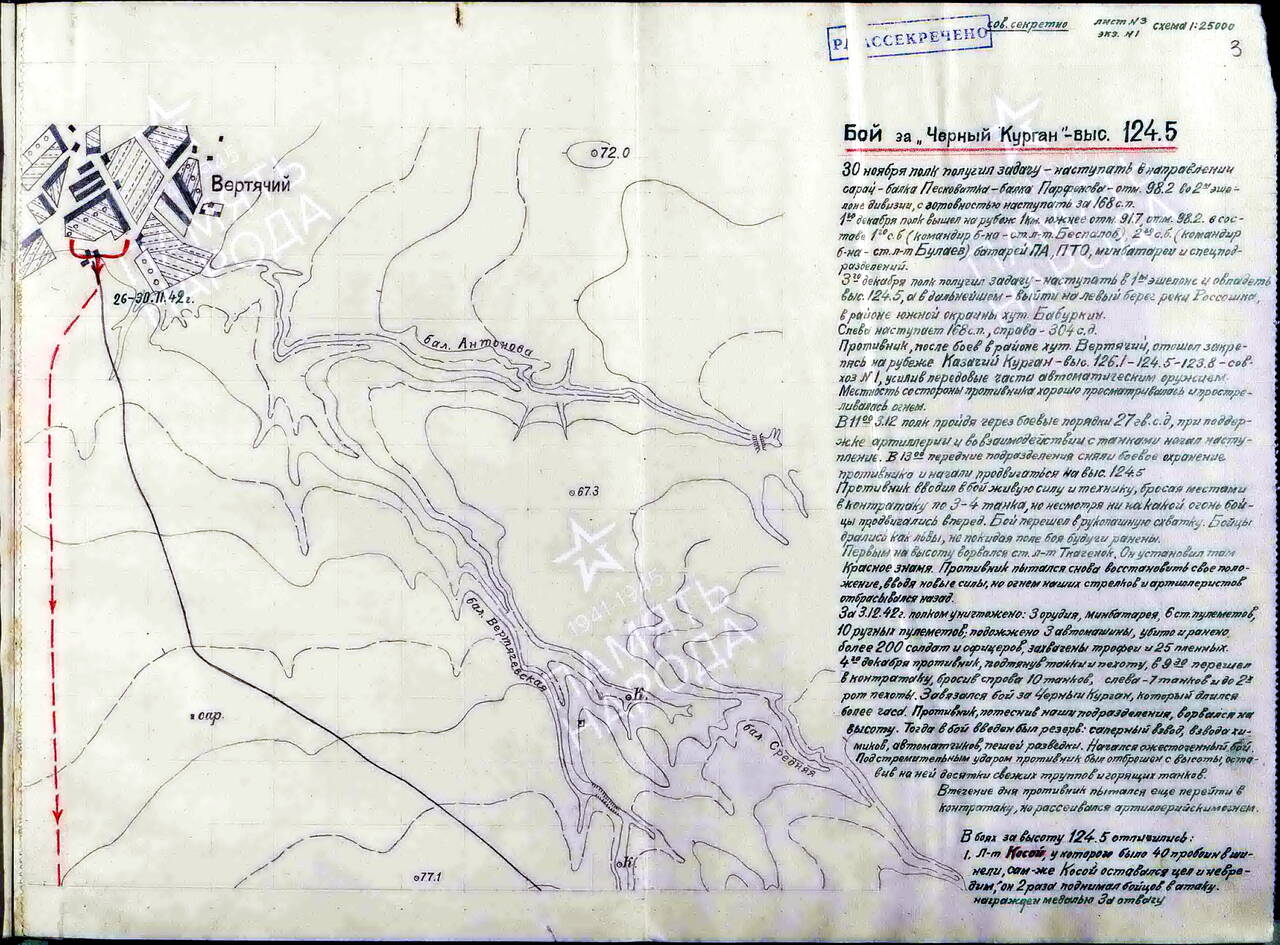 РАССЕКРЕЧЕНО
сов. секретно
лист №3
экз. №1
схема 1:25000
3
Бой за „Черный Курган"-выс. 124.5
30 ноября полк получил задачу - наступать в направлении
сарай - балка Песковатка - балка Парфенова - отм. 98.2 во 2ом эше-
лоне дивизии, с готовностью наступать за 168 с.п.
1го декабря полк вышел на рубеж 1км. южнее отм. 91.7 отм. 98.2. в сос-
таве 1го с.б (командир б-на - ст.л-т. Беспалов), 2го с.б. (командир
б-на - ст.л-т Булаев) батарей ПА, ПТО, минбатареи и спецпод-
разделений.
3го декабря полк получил задачу - наступать в 1ом эшелоне и овладеть
выс. 124.5, а в дальнейшем - выйти на левый берег реки Россошка,
в районе южной окраины хут. Бабуркин.
Слева наступает 168 с.п., справа - 304 с.д.
Противник, после боев в районе хут. Вертячий, отошел закре-
пясь на рубеже Казачий Курган - выс. 126.1 - 124.5 - 123.8 - сов-
хоз №1, усилив передовые части автоматическим оружием.
Местность со стороны противника хорошо просматривалась и простре-
ливалась огнем.
В 11 00 3.12 полк пройдя через боевые порядки 27 гв. с.д, при поддер-
жке артиллерии и во взаимодействии с танками начал насту-
пление. В 13 00 передние подразделения сняли боевое охранение
противника и начали продвигаться на выс. 124.5
Противник вводил в бой живую силу и технику, бросая местами
в контратаку по 3-4 танка, но несмотря ни на какой огонь бой-
цы продвигались вперед. Бой перешел в рукопашную схватку. Бойцы
дрались как львы, не покидая поле боя будучи ранены.
Первым на высоту ворвался ст. л-т Ткаченок, Он установил там
Красное знамя. Противник пытался снова восстановить свое поло-
жение, вводя новые силы, но огнем наших стрелков и артиллеристов
отбрасывался назад.
За 3.12.42г. полком уничтожено: 3 орудия, минбатарея, 6 ст. пулеметов,
10 ручных пулеметов, подожжено 3 автомашины, убито и ранено
более 200 солдат и офицеров, захвачены трофеи и 25 пленных.
4го декабря противник, подтянув танки и пехоту, в 9 00 перешел
в контратаку, бросив справа 10 танков, слева - 7 танков и до 2х
рот пехоты. Завязался бой за Черный Курган, который длился
более часа. Противник, потеснив наши подразделения, ворвался на
высоту. Тогда в бой введен был резерв: саперный взвод, взвода хи-
миков, автоматчиков, пешей разведки. Начался ожесточенный бой.
Под стремительным ударом противник был отброшен с высоты, оста-
вив на ней десятки свежих труппов и горящих танков.
В течение дня противник пытался еще перейти в
контратаку, но рассеивался артиллерийским огнем.
В боях за высоту 124.5 отличились:
1. Л-т Косой, у которого было 40 пробоин в ши-
нели, сам-же Косой оставался цел и невре-
дим, он 2 раза поднимал бойцов в атаку.
награжден медалью За отвагу
72.0
Вертячий
26-30.11.42г.
бал. Антонова
67.3
бал. Вертячевская
К.
сар.
бал. Средняя
К.
77.1
1941-1945
ПАМЯТЬ
НАРОДА